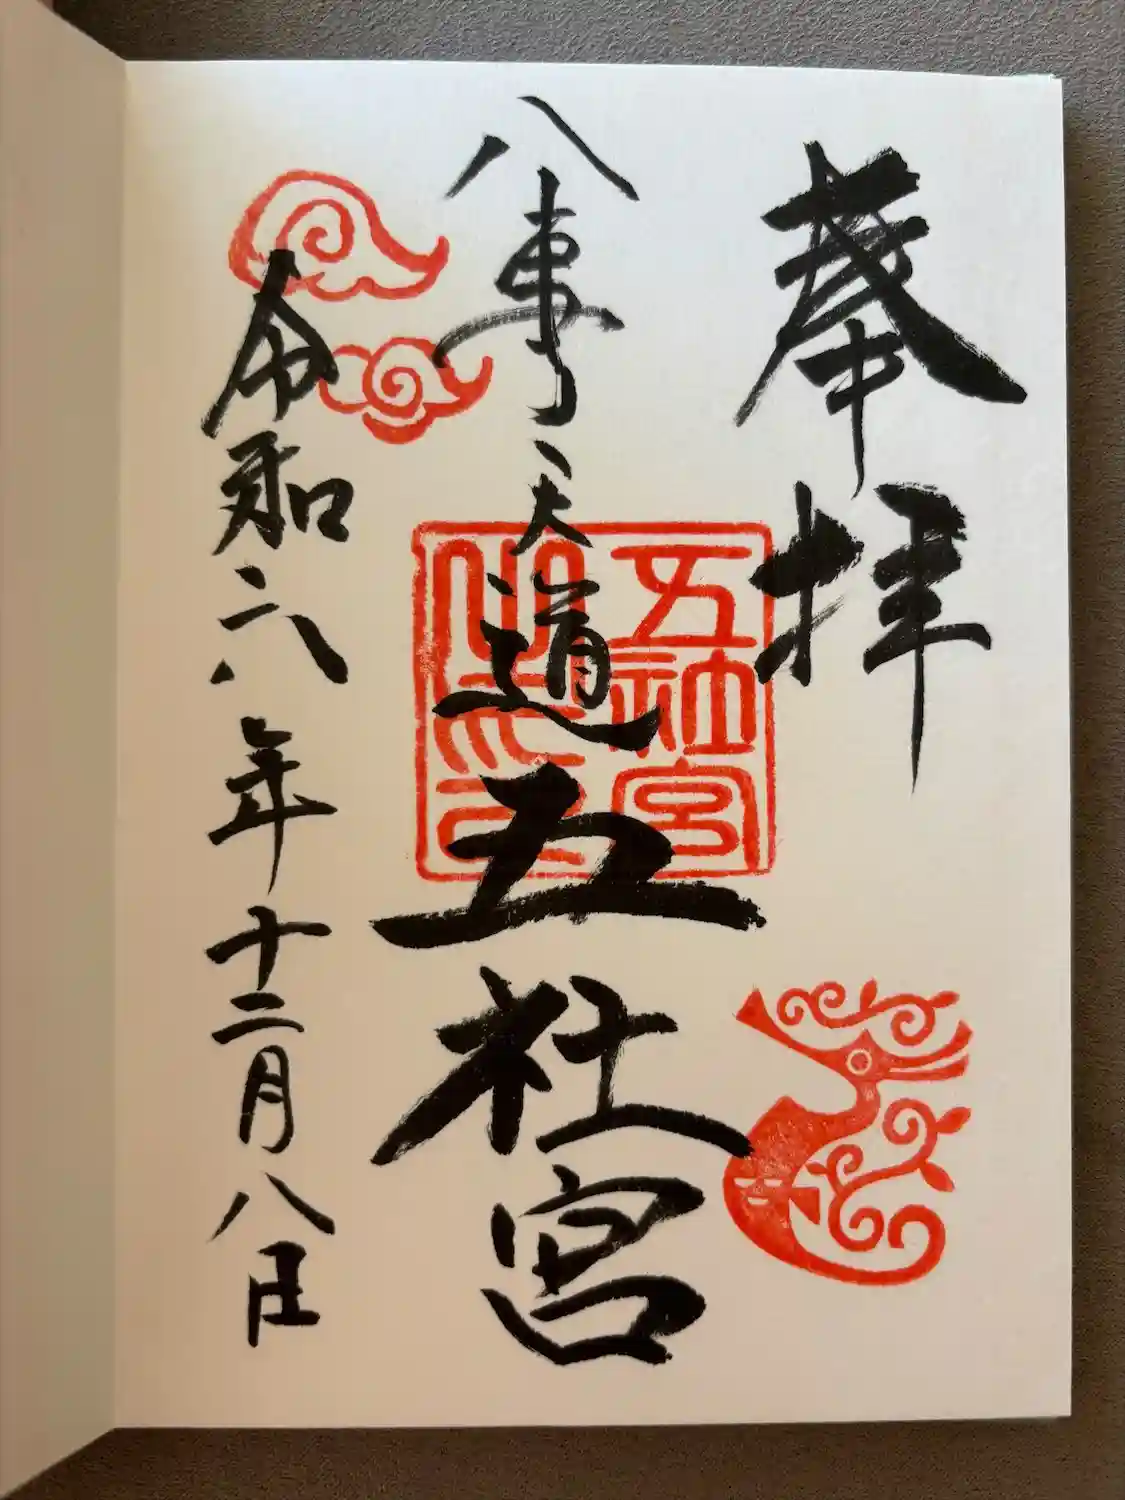 奉拝
八事天道
五社宮
五社宮
之印
令和六年十二月八日